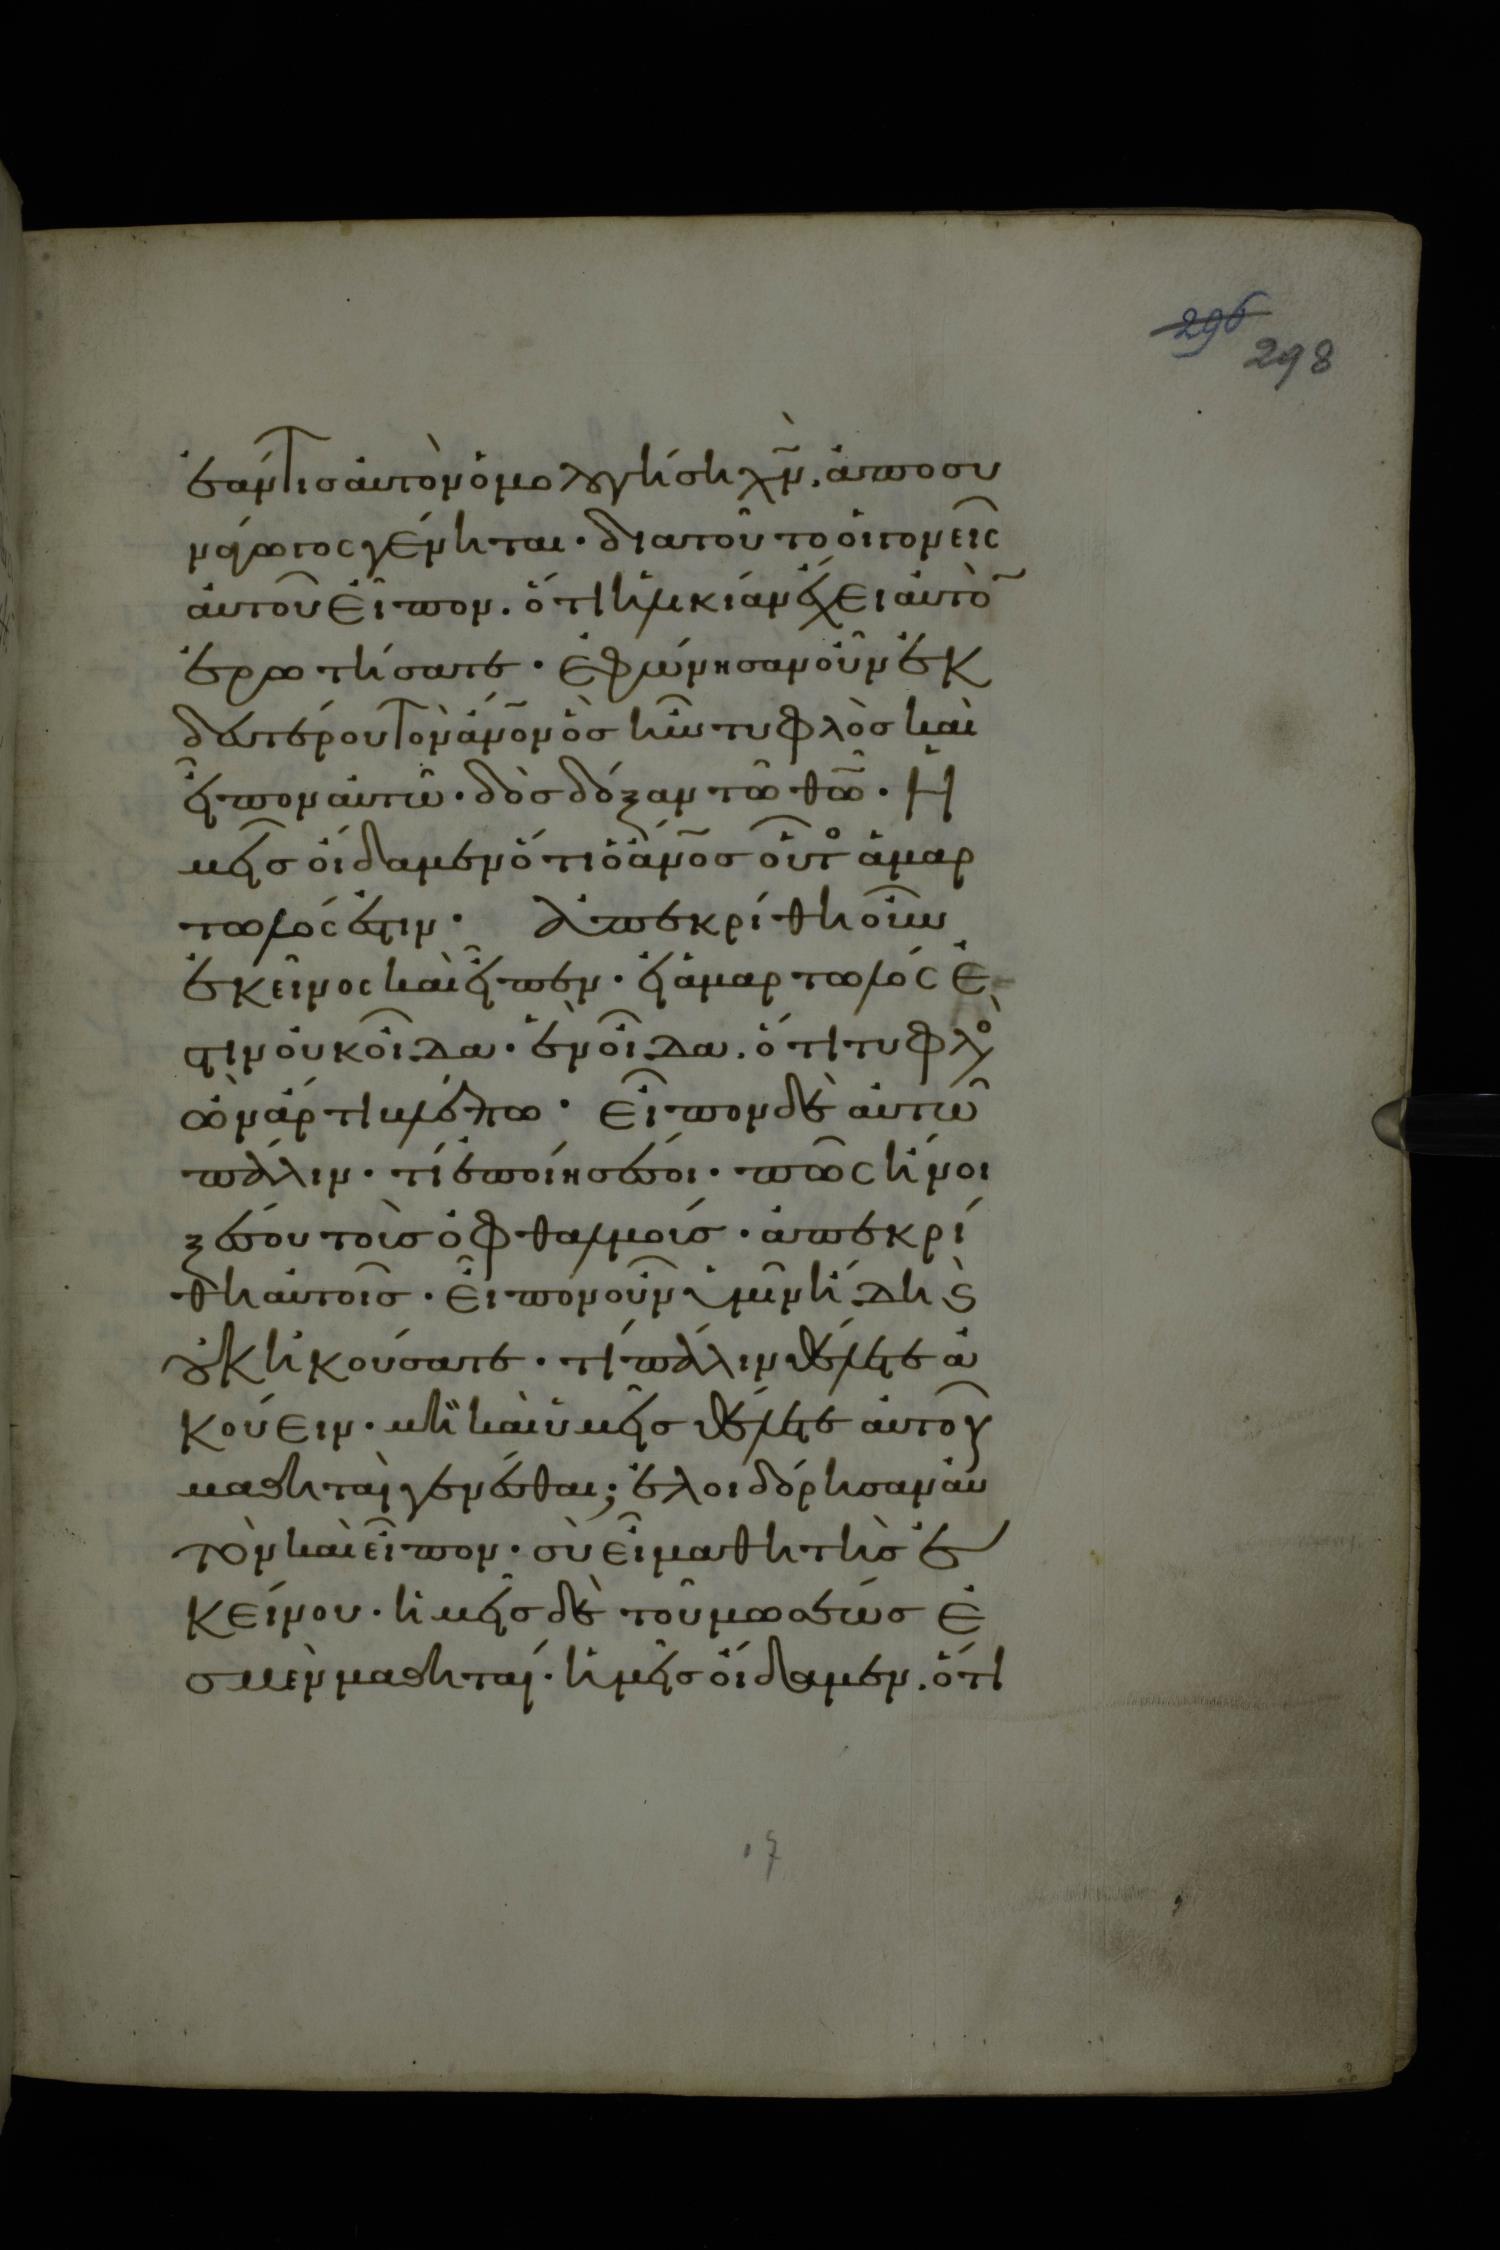 296
298
ἐάν τις αὐτὸν ὁμολογήση χν̅. ἀποσυ
νάγωγος γένηται · διατοῦτο οἱ γονεῖς
αὐτοῦ εἶπον . ὅτι ἡλικίαν ἔχει αὐτὸ̅
ἐρωτήσατε · ἐφώνησαν οὖν ἐκ
δευτέρου τὸν ἄν̅ον ὃσ ἦν τυφλὸσ καὶ
εἶπον αὐτῶ · δὸσ δόξαν τῶ θω̅ · ἡ
μεῖσ οἴδαμεν ὅτι ὁ ἄν̅οσ οὗτος ἁμαρ
τωλός ἐστιν · ἀπεκρίθη οὖν
ἐκεῖνος καὶ εἶπεν · εἰ ἁμαρτωλός ἐ
στιν οὐκ οἶδα · ἓν οἶδα . ὅτι τυφλὸς
ὢν ἄρτι βλέπω · εἶπον δὲ αὐτῶ
πάλιν · τί ἐποίησέ σοι · πῶς ἤνοι
ξέ σου τοὺσ ὀφθαλμούσ · ἀπεκρί
θη αὐτοῖσ · εἶπον ὑμῖν ἤδη καὶ
οὐκ ἠκούσατε · τί πάλιν θέλετε ἀ
κούειν · μὴ καὶ ὑμεῖσ θέλετε αὐτοῦ
μαθηταὶ γενέσθαι; ἐλοιδόρησαν αὐ
τὸν καὶ εἶπον · σὺ εἶ μαθητὴσ ἐ
κείνου · ἡμεῖσ δὲ τοῦ μωσέωσ ἐ
σμὲν μαθηταί · ἡμεῖσ οἴδαμεν . ὅτι